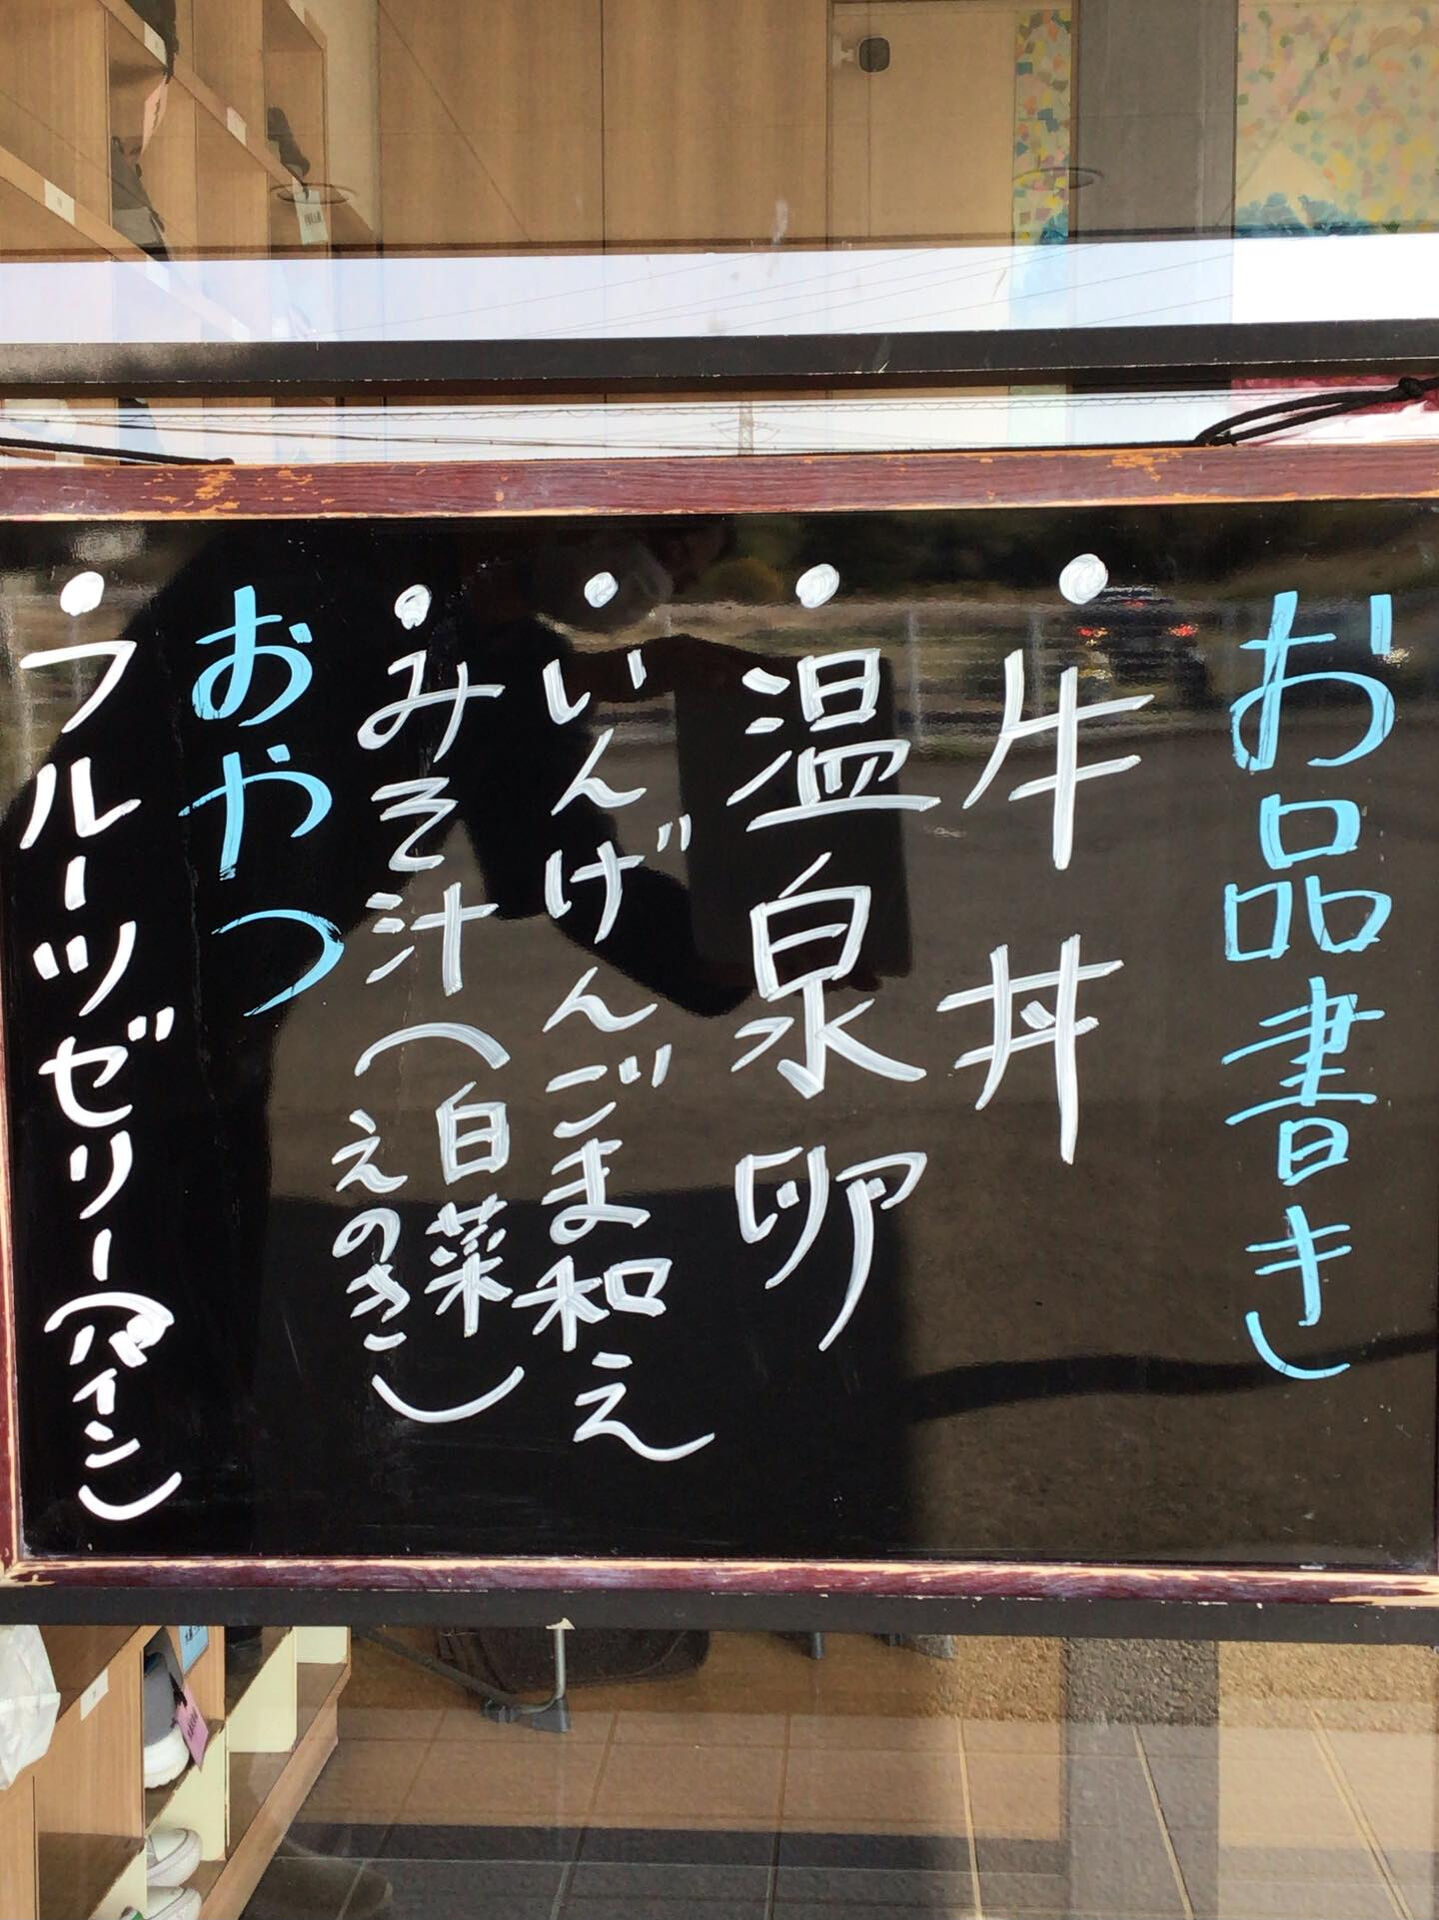 お品書き
・牛丼
・温泉卵
・いんげんごま和え
・みそ汁(白菜
えのき)
おやつ
・フルーツゼリー(パイン)